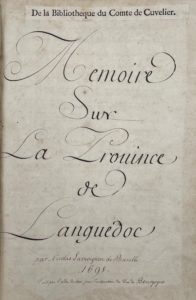 De la Bibliotheque du Comte de Cuvelier.
Memoire
Sur
La Prouince
de
Languedoc
par Nicolas de
1698